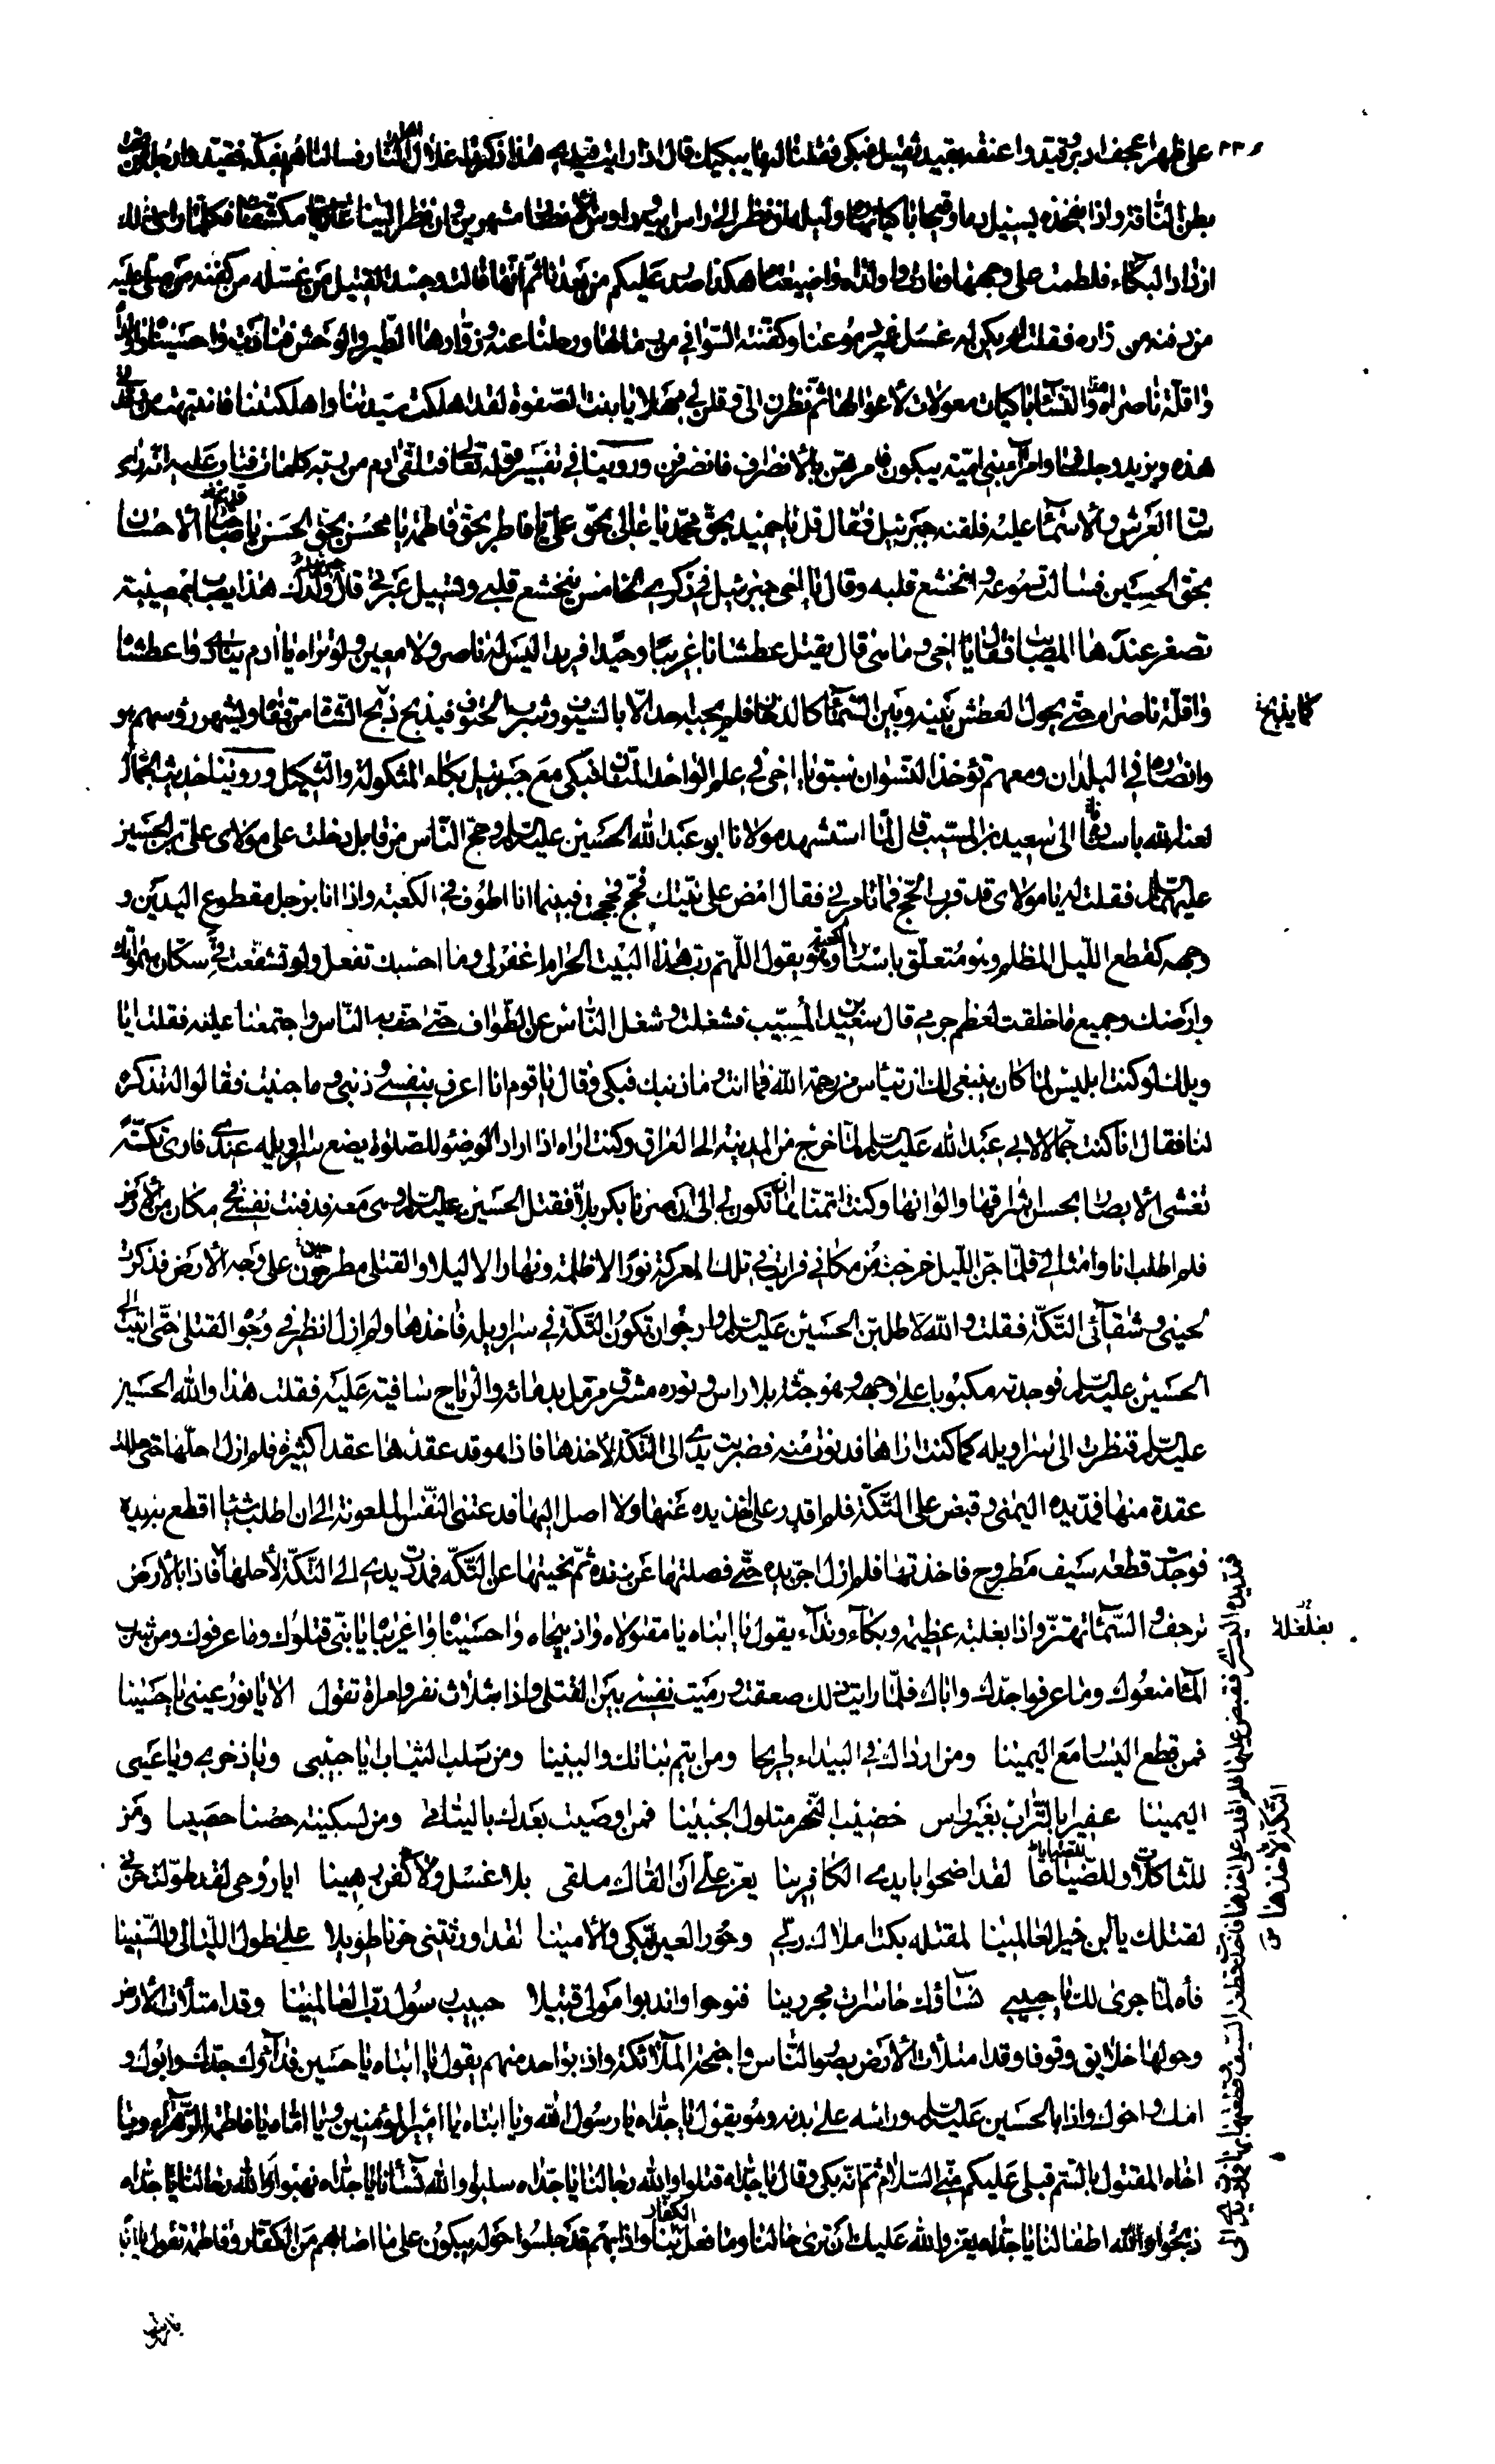 على ظهر اعجف ادبر وقيد واعنقه بقيد ثقيل فبكى فقلنا له ما يبكيك قال اذا رايت قيدي هذا ذكرت اغلال النار فسالنا
بطن الناقة واذا بفخذه يسيل دما وقيحا باكيا وليله ان نظر الى راس ابيه وراوس مشهورين وان نظر الينا مكشفات فكلما راى ذلك
ازداد البكاء فلطمت على وجهها ونادت وا ولداه واضيعتاه هكذا صدر عليكم من بعدنا ثم انها قالت وجسد القتيل من غسله من كفنه من صلى عليه
من دفنه من زاره فقلت لم يكن له غسل غير دموعنا وكفنته السوافي من رمالها ورحلنا عنه وزوارها الطير والوحش فنادت واحسيناه واولداه
واقلة ناصراه والنساء باكيات معولات لاعوالها ثم نظرن الي وقلن لي مهلا يا بنت الصفوة لقد اهلكت سيدتنا واهلكتنا فانتبهت
هذه ويزيد وجل وامراء بني امية يبكون فامرهن بالانصراف فانصرفن وروينا في تفسير قوله تعالى فتلقى ادم من ربه كلمات فتاب عليه انه راى
ساق العرش والاسماء عليه فلقنه جبرئيل فقال قل يا حميد بحق محمد يا عالي بحق علي يا فاطر بحق فاطمة يا محسن بحق الحسن يا صاحب الاحسان
بحق الحسين فسالت دموعه وانخشع قلبه وقال يا اخي جبرئيل في ذكري الخامس ينخشع قلبي وتسيل عبرتي قال ولدك هذا يصاب بمصيبة
تصغر عندها المصائب فقال يا اخي وما هي قال يقتل عطشانا غريبا وحيدا فريدا ليس له ناصر ولا معين ولو تراه يا ادم ينادي واعطشاه
واقلة ناصراه حتى يحول العطش بينه وبين السماء كالدخان فلم يجبه احد الا بالسيوف وشرب الحتوف فيذبح ذبح الشاة من قفاه ويشهر رؤسهم هو
كما يذبح
وانصاره في البلدان ومعهم تؤخذ النسوان سبق يا اخي في علم الواحد المنان فبكى مع جبرئيل بكاء المثكولة والثكيل وروينا حديث الجمال
لعنه الله باسناده الى سعيد بن المسيب قال لما استشهد مولانا ابو عبد الله الحسين عليه السلام وحج الناس من قابل دخلت على مولاي علي بن الحسين
عليهما السلام فقلت له يا مولاي قد قرب الحج فما تامرني فقال امض على نيتك فحج فحججت فبينما انا اطوف في الكعبة واذا انا برجل مقطوع اليدين و
وجهه كقطع الليل المظلم وهو متعلق باستار الكعبة وهو يقول اللهم رب هذا البيت الحرام اغفر لي وما احسبك تفعل ولو تشفعت في سكان سمواتك
وارضك وجميع ما خلقت لعظم جرمي قال سعيد بن المسيب فشغلت وشغل الناس عن الطواف حتى احف به الناس واجتمعنا عليه فقلنا يا
ويلك لو كنت ابليس لما كان ينبغي لك ان تياس من رحمة الله فما انت وما ذنبك فبكى وقال يا قوم انا اعرف بنفسي وذنبي وما جنيت فقالوا له تذكره
لنا فقال انا كنت جمالا لابي عبد الله عليه السلام لما خرج من المدينة الى العراق وكنت اراه اذا اراد الوضوء للصلوة يضع سراويله عندي فارى تكته
تغشى الابصار بحسن اشراقها والوانها وكنت اتمناها تكون لي الى ان صرنا بكربلا فقتل الحسين عليه السلام وهي معه فدفنت نفسي في مكان من الارض
فلم اطلب انا وامثالي فلما جن الليل خرجت من مكاني فرايت في تلك المعركة نورا لا ظلمة ونهارا لا ليلا والقتلى مطرحون على وجه الارض فذكرت
لحيني وشقائي التكة فقلت والله لاطلبن الحسين عليه السلام وارجو ان تكون التكة في سراويله فاخذها ولم ازل انظر في وجوه القتلى حتى اتيت الى
الحسين عليه السلام فوجدته مكبوبا على وجهه وهو جثة بلا راس ونوره مشرق مرمل بدمائه والرياح سافية عليه فقلت هذا والله الحسين
عليه السلام فنظرت الى سراويله كما كنت اراها فدنوت منه فضربت يدي الى التكة لاخذها فاذا هو قد عقدها عقدا كثيرة فلم ازل احلها حتى حللت
عقدة منها فمد يده اليمنى وقبض على التكة فلم اقدر على اخذ يده عنها ولا اصل اليها فدعتني النفس الملعونة الى ان اطلب شيئا اقطع به يديه
فوجدت قطعة سيف مطروح فاخذتها فلم ازل احز يده حتى فصلتها عن زنده ثم نحيتها عن التكة فمددت يدي الى التكة لاحلها فاذا بالارض
ترجف والسماء تهتز واذا بغلبة عظيمة وبكاء ونداء يقول يا ابناه يا مقتولاه واذبيحاه واحسيناه واغريباه يا بني قتلوك وما عرفوك ومن شرب
بغلغلة
الماء منعوك وما عرفوا جدك واباك فلما رايت ذلك صعقت ورميت نفسي بين القتلى واذا بثلاث نفر وامراة تقول الا يا نور عيني يا حسينا
فمن قطع اليسار مع اليمينا ومن ارداك في البيداء طريحا ومن ايتم بناتك والبنينا ومن سلب الثياب يا حبيبي ويا ذخري ويا عيني
اليمينا عفيرا بالتراب بغير راس خضيب النحر متلول الجبينا فمن اوصيت بعدك باليتامى ومن لسكينة حصنا حصينا ومن
للثاكلات وللضياعا لقد اضحوا بايدي الكافرينا يعز علي ان القاك ملقى بلا غسل ولا كفن رهينا ايا روحي لقد طولت حزني
لقتلك يا ابن خير العالمينا لمقتله بكت املاك ربي وحور العين تبكي والامينا لقد اورثتني حزنا طويلا على طول الليالي والسنينا
فآه لما جرى لك يا حبيبي نساؤك حاسرات مجردينا فنوحوا واندبوا مولى قتيلا حبيب رسول رب العالمينا وقد امتلات الارض
وحولها خلايق وقوفا وقد امتلات الارض بصور الناس واجنحة الملائكة واذ بواحد منهم يقول يا ابناه يا حسين فداك جدك وابوك و
امك واخوك واذا بالحسين عليه السلام وراسه على بدنه وهو يقول يا جداه يا رسول الله ويا ابتاه يا امير المؤمنين ويا اماه يا فاطمة الزهراء ويا
اخاه المقتول بالسم قبلي عليكم مني السلام ثم انه بكى وقال يا جداه قتلوا والله رجالنا يا جداه سلبوا والله نساءنا يا جداه نهبوا والله رحالنا يا جداه
ذبحوا والله اطفالنا يا جداه يعز والله عليك ان ترى حالنا وما فعل الكفار بنا واذا بهم قد جلسوا حوله يبكون على ما اصابهم من الكفار وفاطمة تقول يا ابا
فمد يده اليسرى فقبض عليها فلم اقدر على اخذها فاخذت قطعة السيف فقطعتها
التكة لاخذها